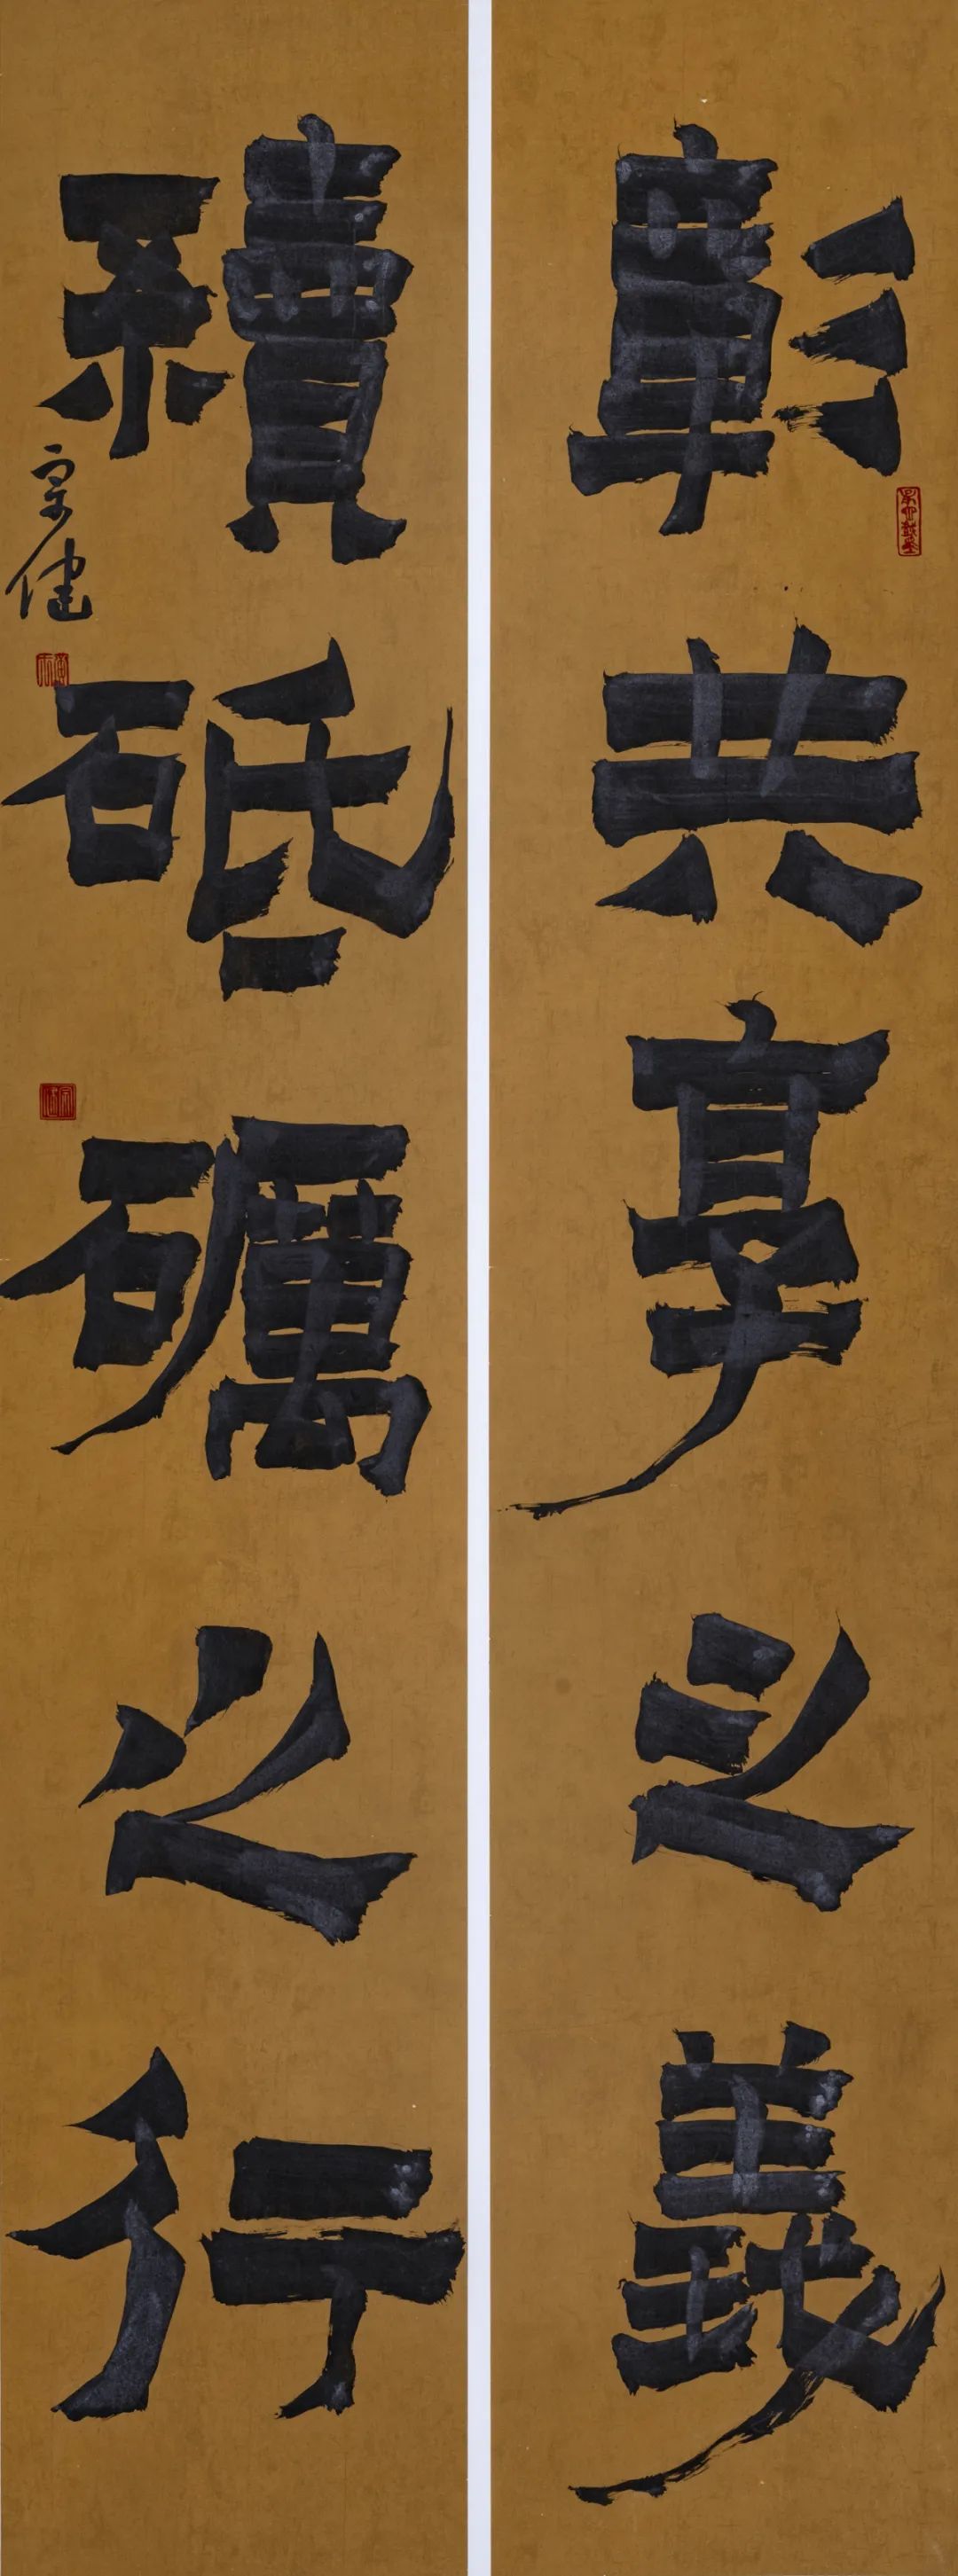 彰共享之義
續砥礪之行
宗健